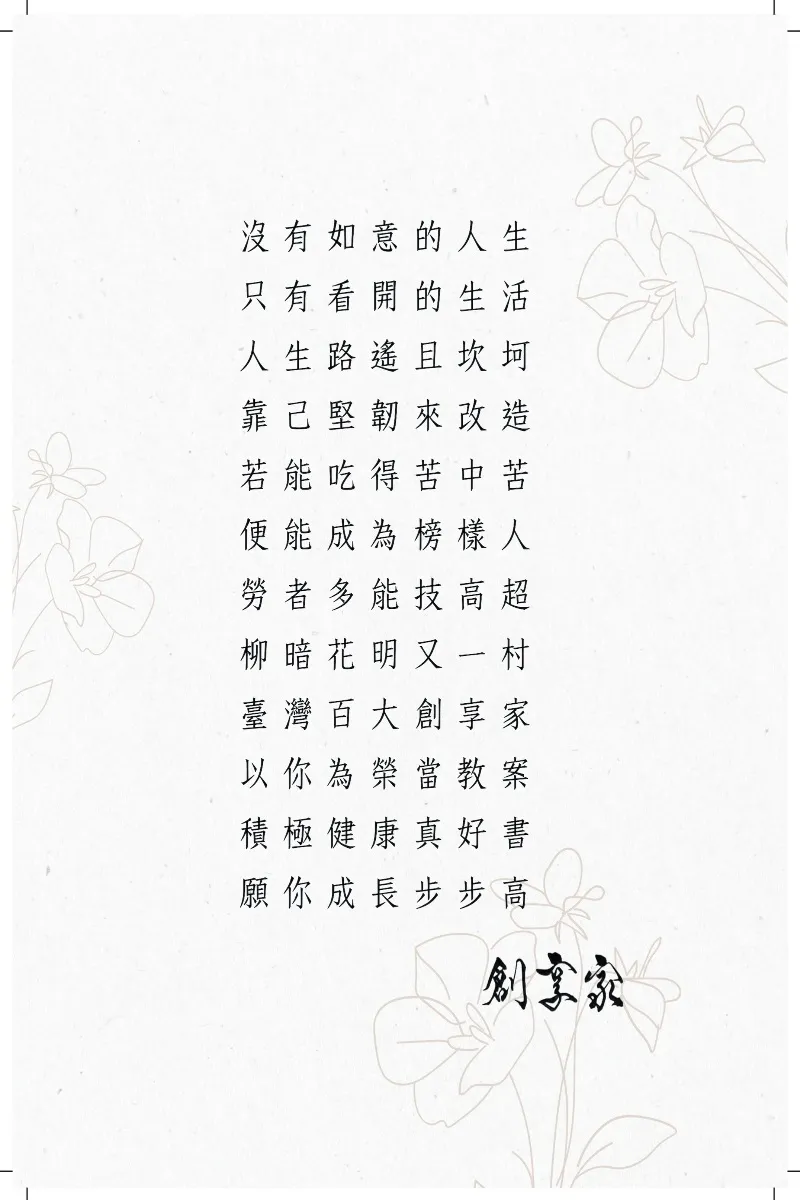 沒有如意的人生
只有看開的生活
人生路遙且坎坷
靠己堅韌來改造
若能吃得苦中苦
便能成為榜樣人
勞者多能技高超
柳暗花明又一村
臺灣百大創享家
以你為榮當教案
積極健康真好書
願你成長步步高
創享家